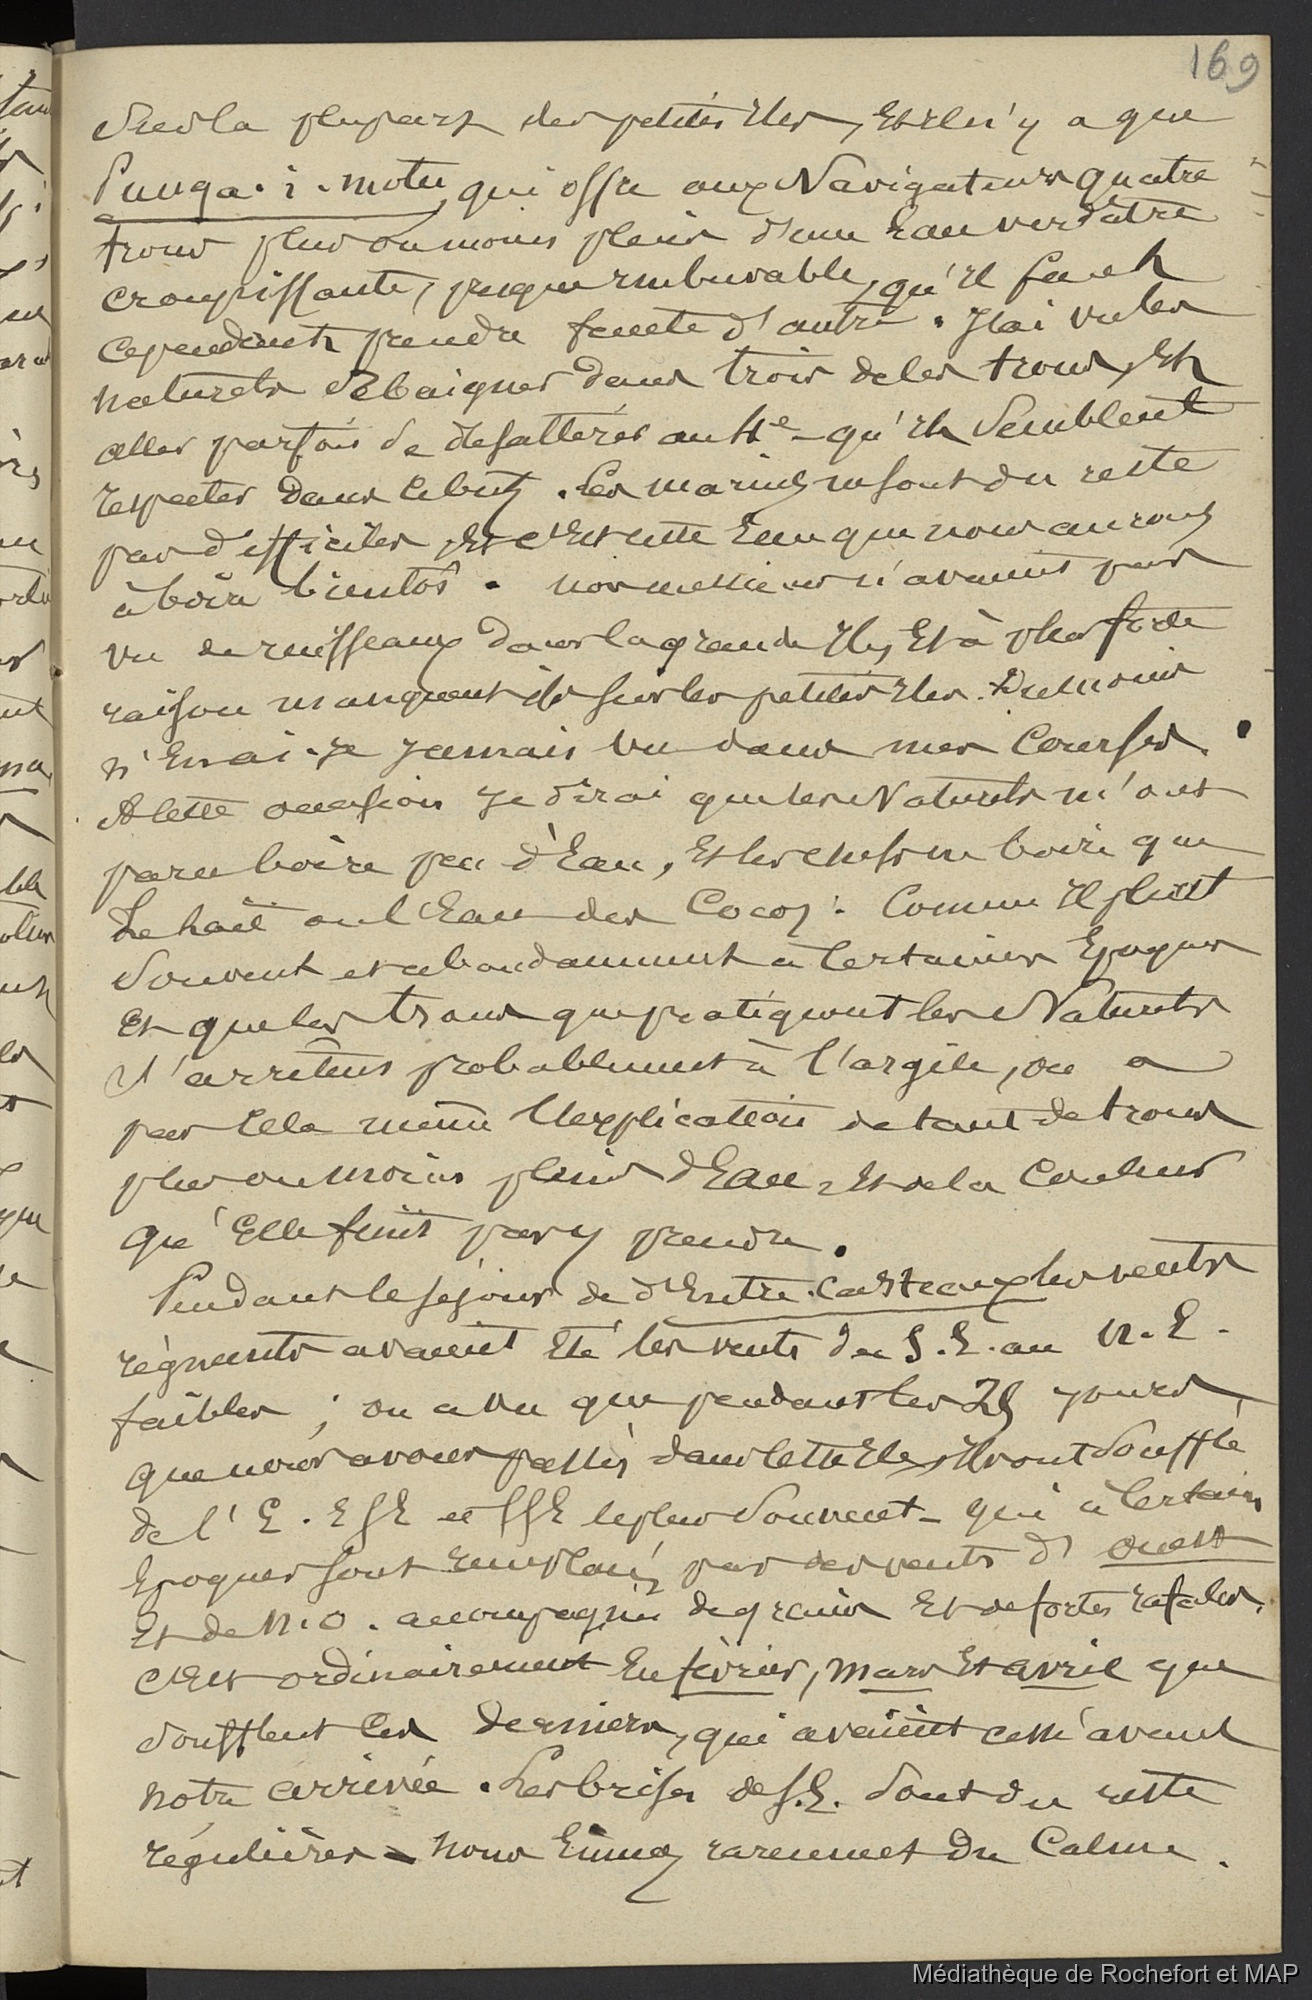 169
Sur la plupart des petites Iles, Et il n'y a que
Punga. i. motu, qui offre aux Navigateurs quatre
trous plus ou moins pleins d'une Eau verdâtre
croupissante, presque imbuvable, qu'il faut
cependant prendre faute d'autre. J'ai vu les
naturels se baigner dans trois de ces trous, Et
aller parfois se désaltérer au 4e - qu'ils semblent
respecter dans ce but. Les marins ne sont du reste
pas difficiles, Et c'Est cette Eau que nous aurons
à boire bientôt. nos messieurs n'avaient pas
vu de ruisseaux dans la grande Ile, Et à plus forte
raison manquent ils sur les petites Iles. Du moins
n'En ai-Je Jamais vu dans mes Courses.
A Cette occasion Je dirai que les Naturels m'ont
paru boire peu d'Eau, Et les chefs ne boire que
Le lait ou l'Eau des Cocos. Comme Il pleut
Souvent et abondamment à Certaines Epoques
Et que les trous que pratiquent les Naturels
S'arrêtent probablement à l'argile, on a
par Cela même l'explication de tant de trous
plus ou moins pleins d'Eau, Et de la Couleur
qu'Elle finit par y prendre.
Pendant le séjour de d'Entrecasteaux les vents
régnants avaient Eté les vents du S.E. au N.E.
faibles; on a vu que pendant les 25 jours
que nous avons passés dans cette Ile, Ils ont Soufflé
de l'E. ESE et SSE le plus Souvent - qui à Certaines
Epoques sont remplacés par des vents d'ouest
Et de N.O. accompagnés de grains Et de fortes rafales.
C'Est ordinairement En février, mars Et avril que
Soufflent Ces derniers, qui avaient cessé avant
notre arrivée. Les brises de S.E. Sont du reste
régulières - nous Eûmes rarement du Calme.
Médiathèque de Rochefort et MAP